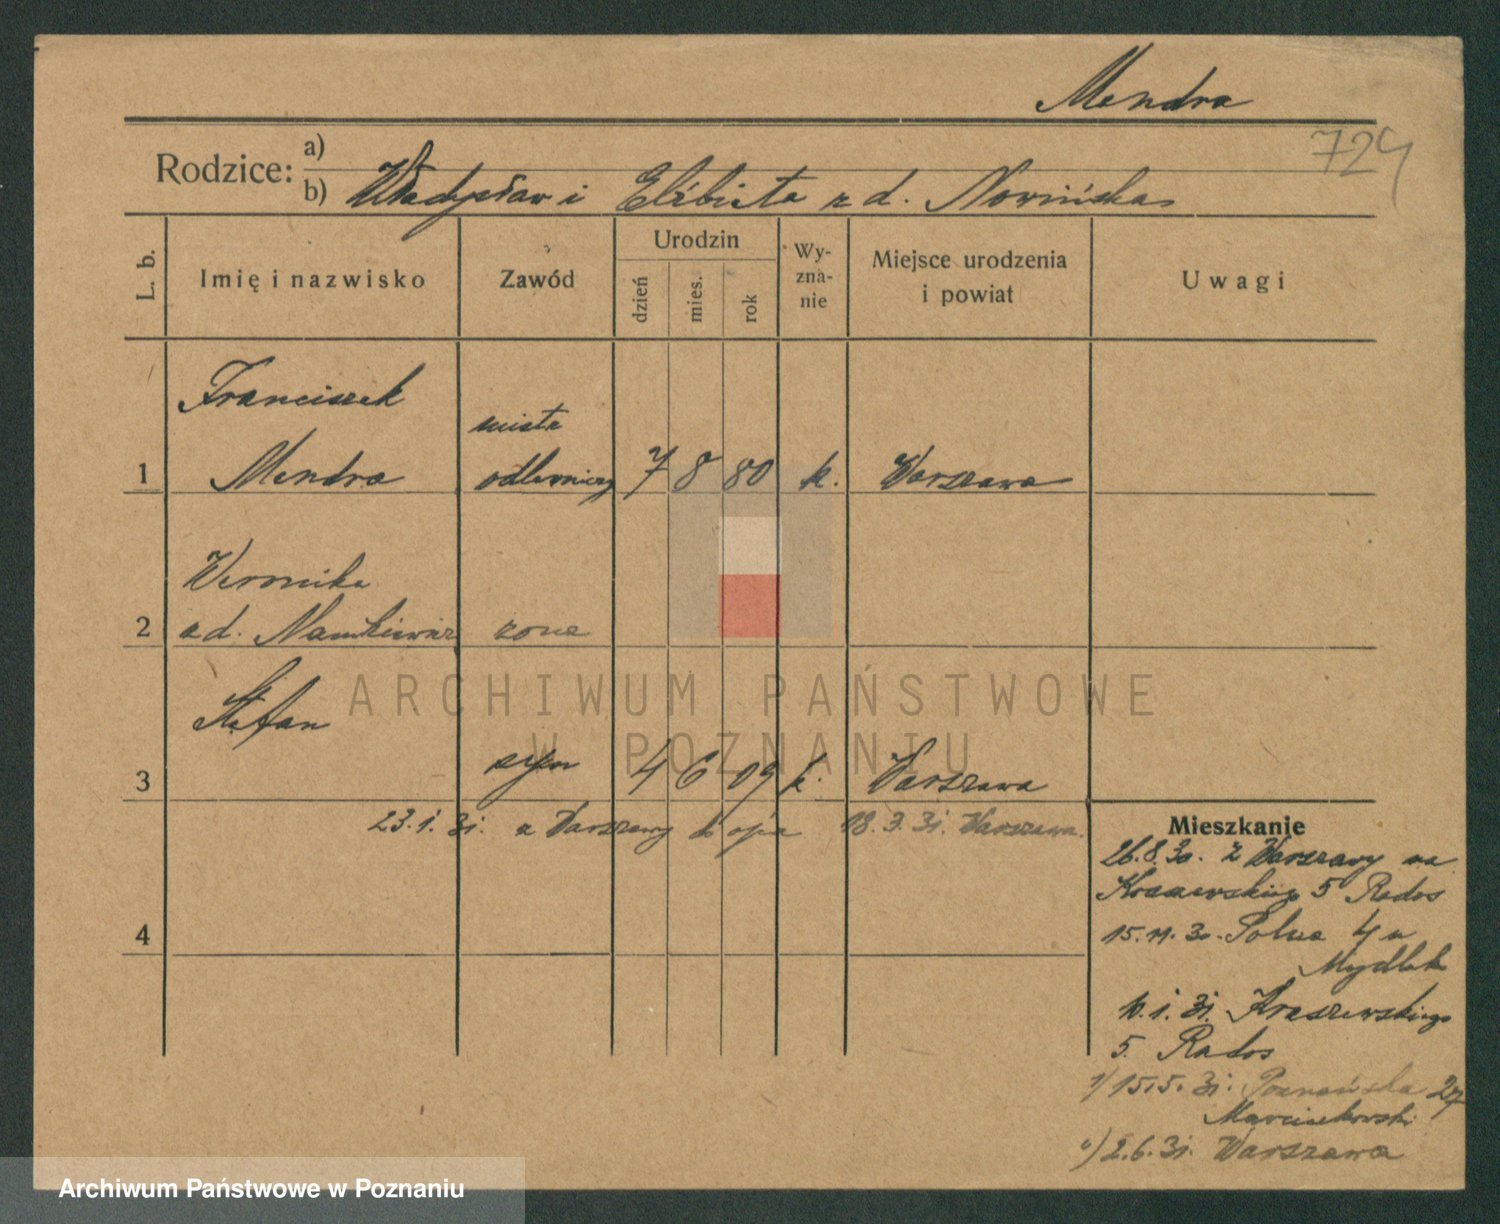 Mendra
724
Rodzice:
a)
b) Władysław i Elżbieta z d. Nowińska
L. b.
Imię i nazwisko
Zawód
Urodzin
dzień
mies.
rok
Wy-
zna-
nie
Miejsce urodzenia
i powiat
Uwagi
Franciszek
1 Mendra
odlewniczy 7 8 80 k. Warszawa
Weronika
2 z d. żona
Stefan
3 syn 4 6 09 k. Warszawa
23.1.31. z Warszawy do ojca 18.3.31. Warszawa.
4
Mieszkanie
26.8.30. z Warszawy na
Kraszewskiego 5 Rados
15.11.30. Polna 4 u
Mydlak
10.1.31. Kraszewskiego
5. Rados
1) 15.5.31. Poznańska 27
Marciszewski
2.6.31. Warszawa
ARCHIWUM PAŃSTWOWE
W POZNANIU
Archiwum Państwowe w Poznaniu